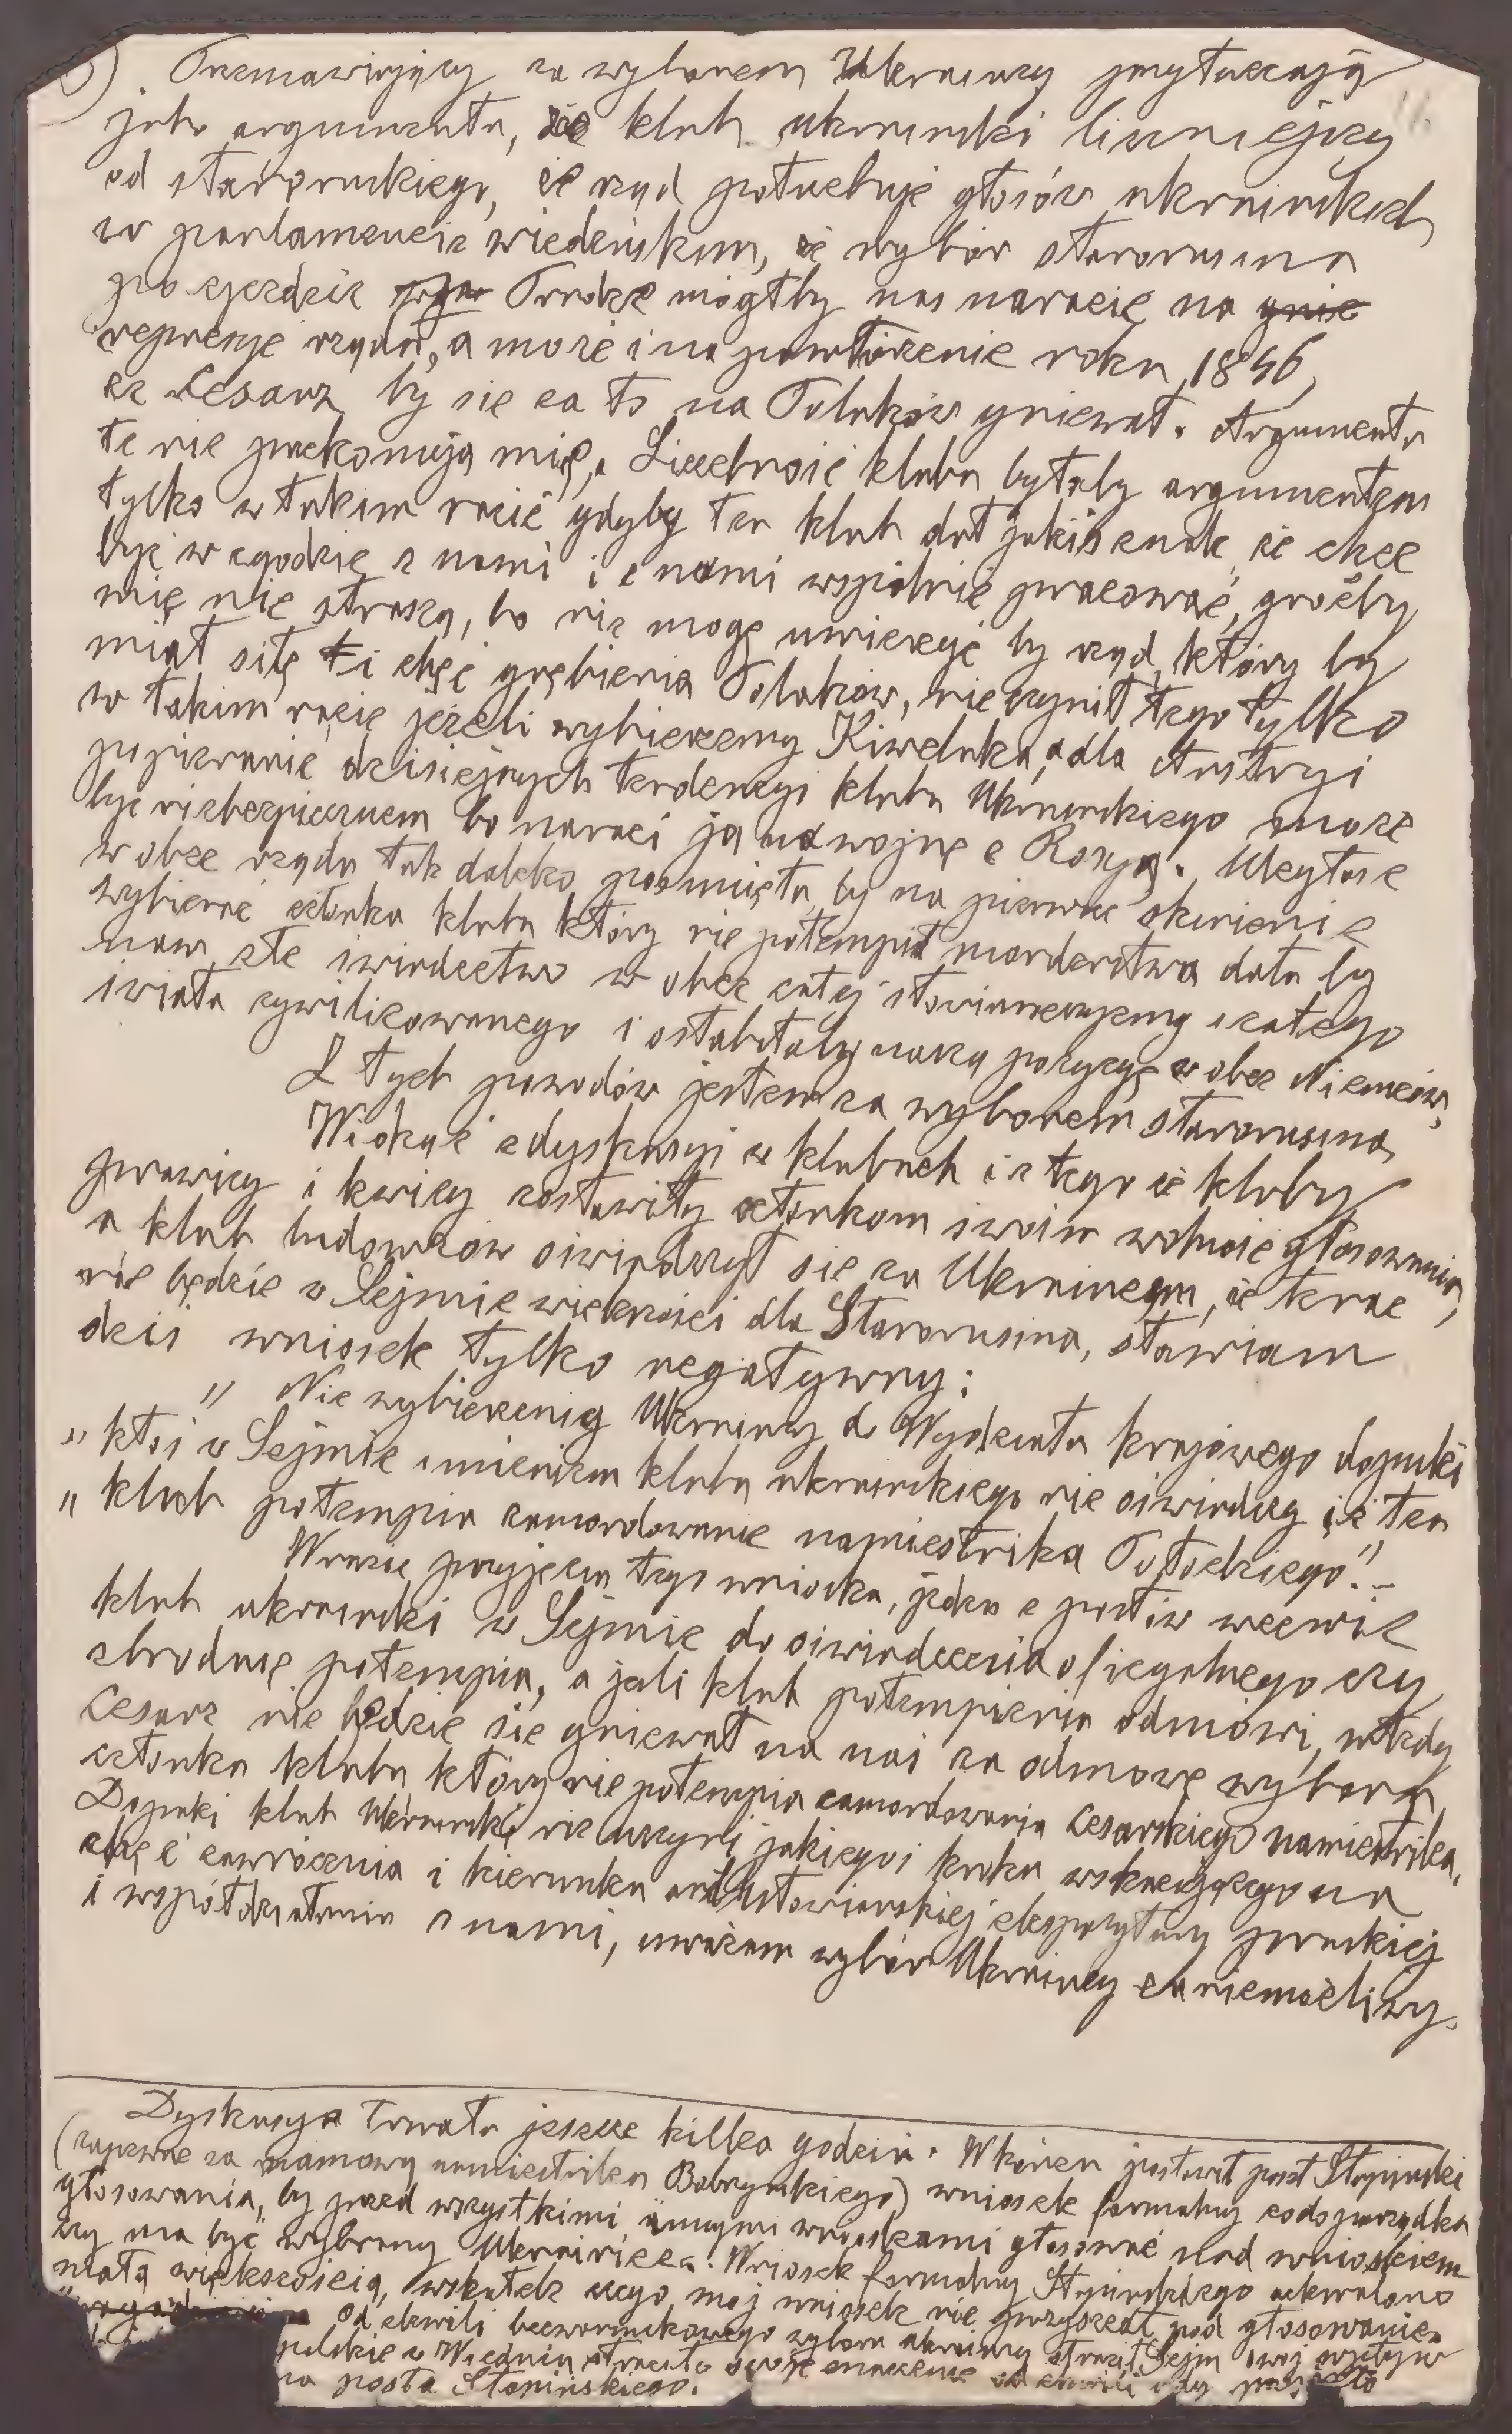 Przemawiający za wyborem Ukraińcy przytaczają
jako argumenta, że klub ukraiński liczniejszy
od staroruskiego, że rząd potrzebuje głosów ukraińskich
w parlamencie wiedeńskim, że wybór starorusina
po zjeździe Pradze mógłby nas narazić na
represje rządu, a może i na powtórzenie roku 1846,
że Cesarz by się za to na Polaków gniewał. Argumenta
te nie przekonują mię. Liczebność klubu byłaby argumentem
tylko w takim razie gdyby ten klub dał jakiś znak że chce
być w zgodzie z nami i z nami wspólnie pracować, groźby
mię nie straszą, bo nie mogę uwierzyć by rząd, który by
miał siłę i chęć gnębienia Polaków, nie czynił tego tylko
w takim razie jeżeli wybierzemy Kiweluka, a dla Austryi
popieranie dzisiejszych tendencyi klubu Ukraińskiego może
być niebezpiecznem bo narazi ją na wojnę z Rosyą. Uległość
wobec rządu tak daleko posunięta by na pierwsze skinienie
wybierać członka klubu który nie potempił morderstwa dała by
nam złe świadectwo w obec całej słowiańszczyzny i całego
świata cywilizowanego i osłabiłaby naszą pozycyę w obec Niemców,
Z tych powodów jestem za wyborem starorusina
Widząc z dyskusyi w klubach i z tego że kluby
prawicy i lewicy zostawiły członkom swoim wolność głosowania,
a klub ludowców oświadczył się za Ukraińcem, że teraz
nie będzie w Sejmie większości dla Starorusina, stawiam
dziś wniosek tylko negatywny:
" Nie wybierzemy Ukraińcy do Wydziału krajowego dopuki
" ktoś w Sejmie imieniem klubu ukraińskiego nie oświadczy że ten
" klub potempia zamordowanie namiestnika Potockiego."–
W razie przyjęcia tego wniosku, jeden z posłów wezwie
klub ukraiński w Sejmie do oświadczenia oficyalnego czy
zbrodnię potempia, a jeśli klub potempienia odmówi, wtedy
Cesarz nie będzie się gniewał na nas za odmowę wyboru
członka klubu który nie potempia zamordowania cesarskiego namiestnika.
Dopuki klub Ukraiński nie uczyni jakiegoś kroku wskazującego na
chęć zawrócenia z kierunku antysłowiańskiej ekspozytury pruskiej
i współdziałania z nami, uważam wybór Ukraińcy za niemożliwy.
Dyskusya trwała jeszcze kilka godzin. W końcu postawił poseł Stapiński
(zapewne za namową namiestnika Bobrzyńskiego) wniosek formalny co do porządku
głosowania, by przed wszystkimi innymi wnioskami głosować nad wnioskiem
czy ma być wybrany Ukrainiec. Wniosek formalny Stapińskiego uchwalono
małą większością, wskutek czego mój wniosek nie przyszedł pod głosowanie.
Od chwili bezwarunkowego wyboru ukraińcy stracił Sejm swój wpływ
polskie w Wiedniu straciło swoje znaczenie od chwili gdy
na posła Stapińskiego.